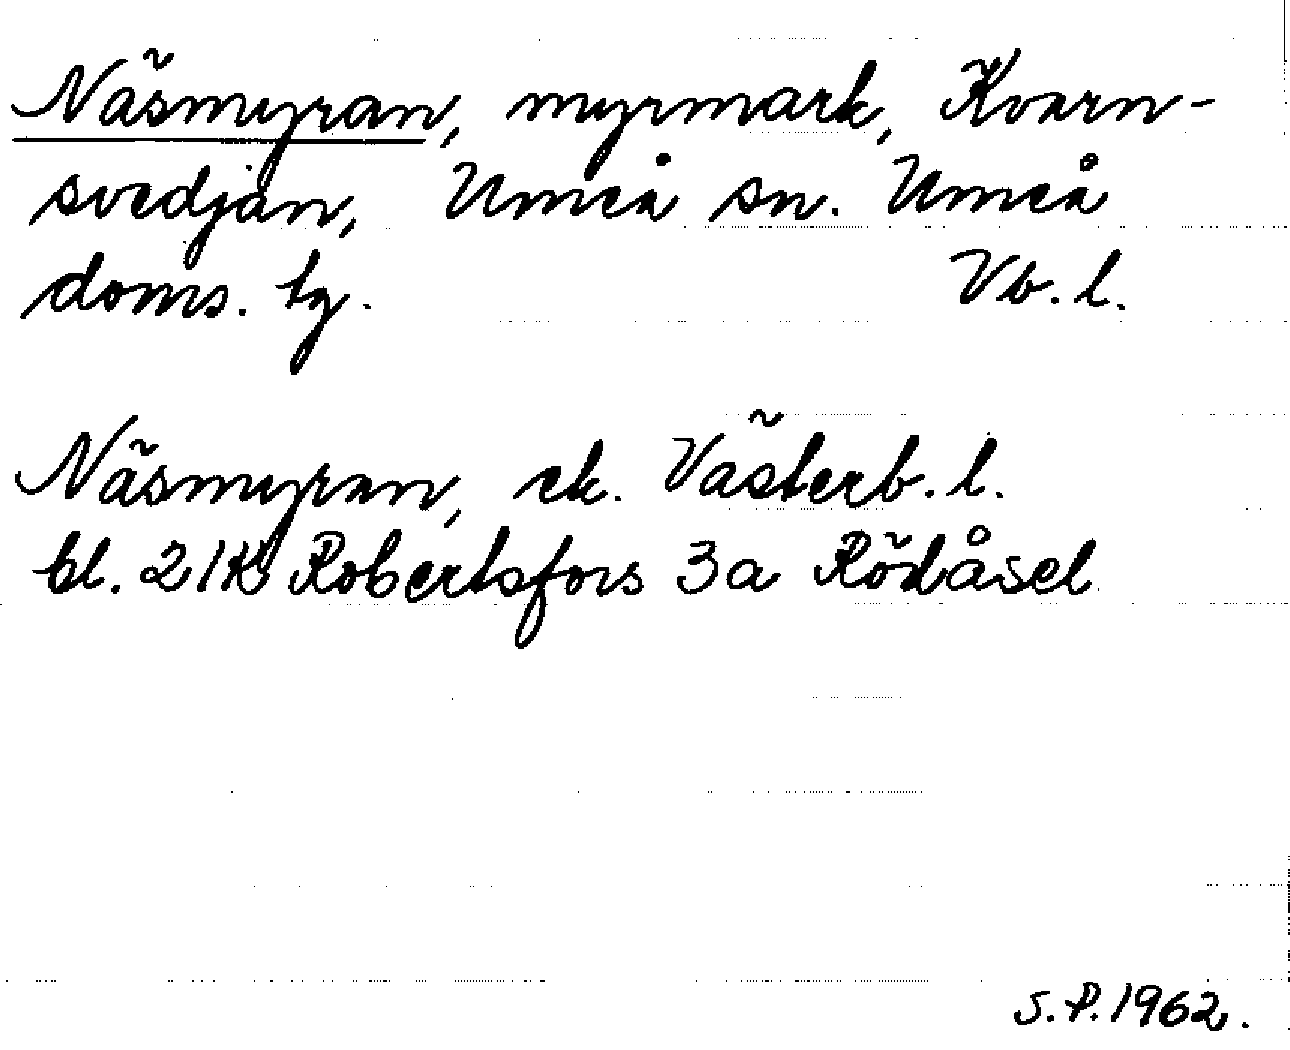 Näsmyran, myrmark, Kvarn-
svedjan, Umeå sn. Umeå
doms. tg. Vb. l.
Näsmyran, ek. Västerb. l.
bl. 21K Robertsfors 3a Rödåsel
S. P. 1962.